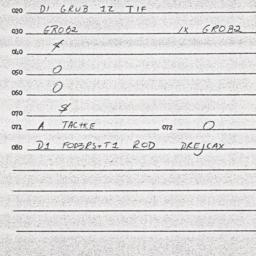 020 D1 GRUB 12 TIF
030 GROB2 1X GROB2
040
050 0
060 0
070 $
071 A TACHKE 072 0
080 D1 ROD